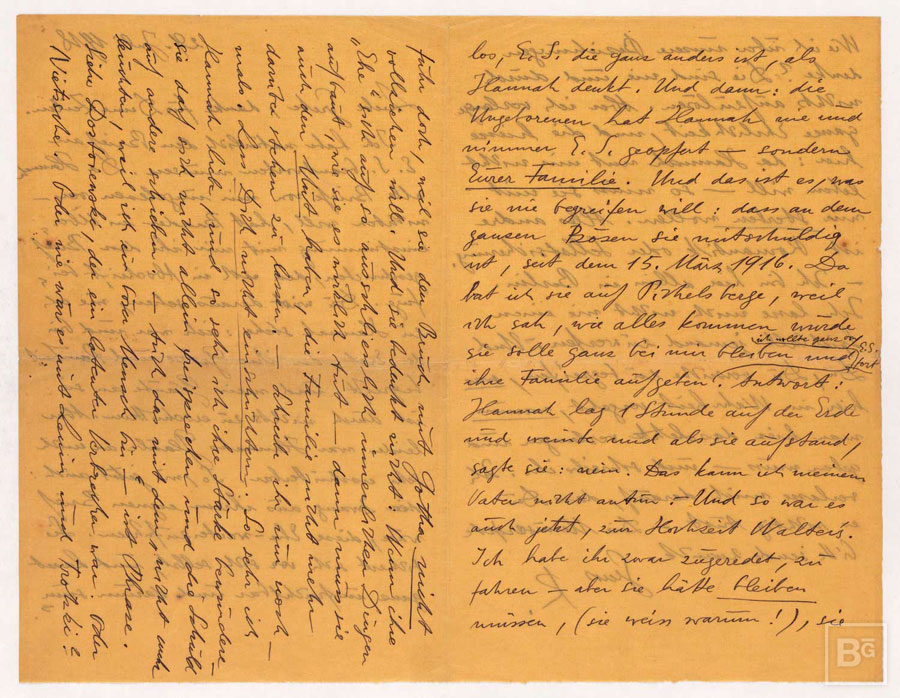 los, E. S. die ganz anders ist, als
Hannah denkt. Und dann: die
Ungeborenen hat Hannah nie und
nimmer E. S. geopfert — sondern
Eurer Familie. Und das ist es, was
sie nie begreifen will: dass an dem
ganzen Bösen sie mitschuldig
ist, seit dem 15. März 1916. Da
bat ich sie auf Pichelsberge, weil
ich sah, wie alles kommen würde
(ich wollte ganz von E. S. fort)
sie solle ganz bei mir bleiben und
ihre Familie aufgeben. Antwort:
Hannah lag 1 Stunde auf der Erde
und weinte und als sie aufstand,
sagte sie: nein. Das kann ich meinem
Vater nicht antun. — Und so war es
auch jetzt, zur Hochzeit Walters.
Ich habe ihr zwar zugeredet, zu
fahren — aber sie hätte bleiben
müssen, (sie weiss warum!), sie
fuhr doch, weil sie den Bund mit Gotha nicht
vollziehen will. Und sie bedenkt nicht: Wenn ihre
„Ehe" sich auf so ausschliesslich innerlichen Dingen
aufbaut, wie sie es wirklich tut — dann muss sie
auch den Mut haben, die Familie nicht mehr
darüber sehen zu lassen. — Schreibe ihr nur noch-
mals. Lass Dich nicht einschüchtern. So sehr ich
Hannah liebe und so sehr ich ihre Stärke bewundere —
sie darf sich nicht allein freisprechen und die Schuld
auf andere schieben — auch das mit dem, nicht auf-
leuchten, weil ich ein böser Mensch bin — ist Phrase.
Siehe Dostojewski, der ein latenter Verbrecher war. Oder
Nietzsche. Oder wie wär es mit Lenin und Trotzki?
BG